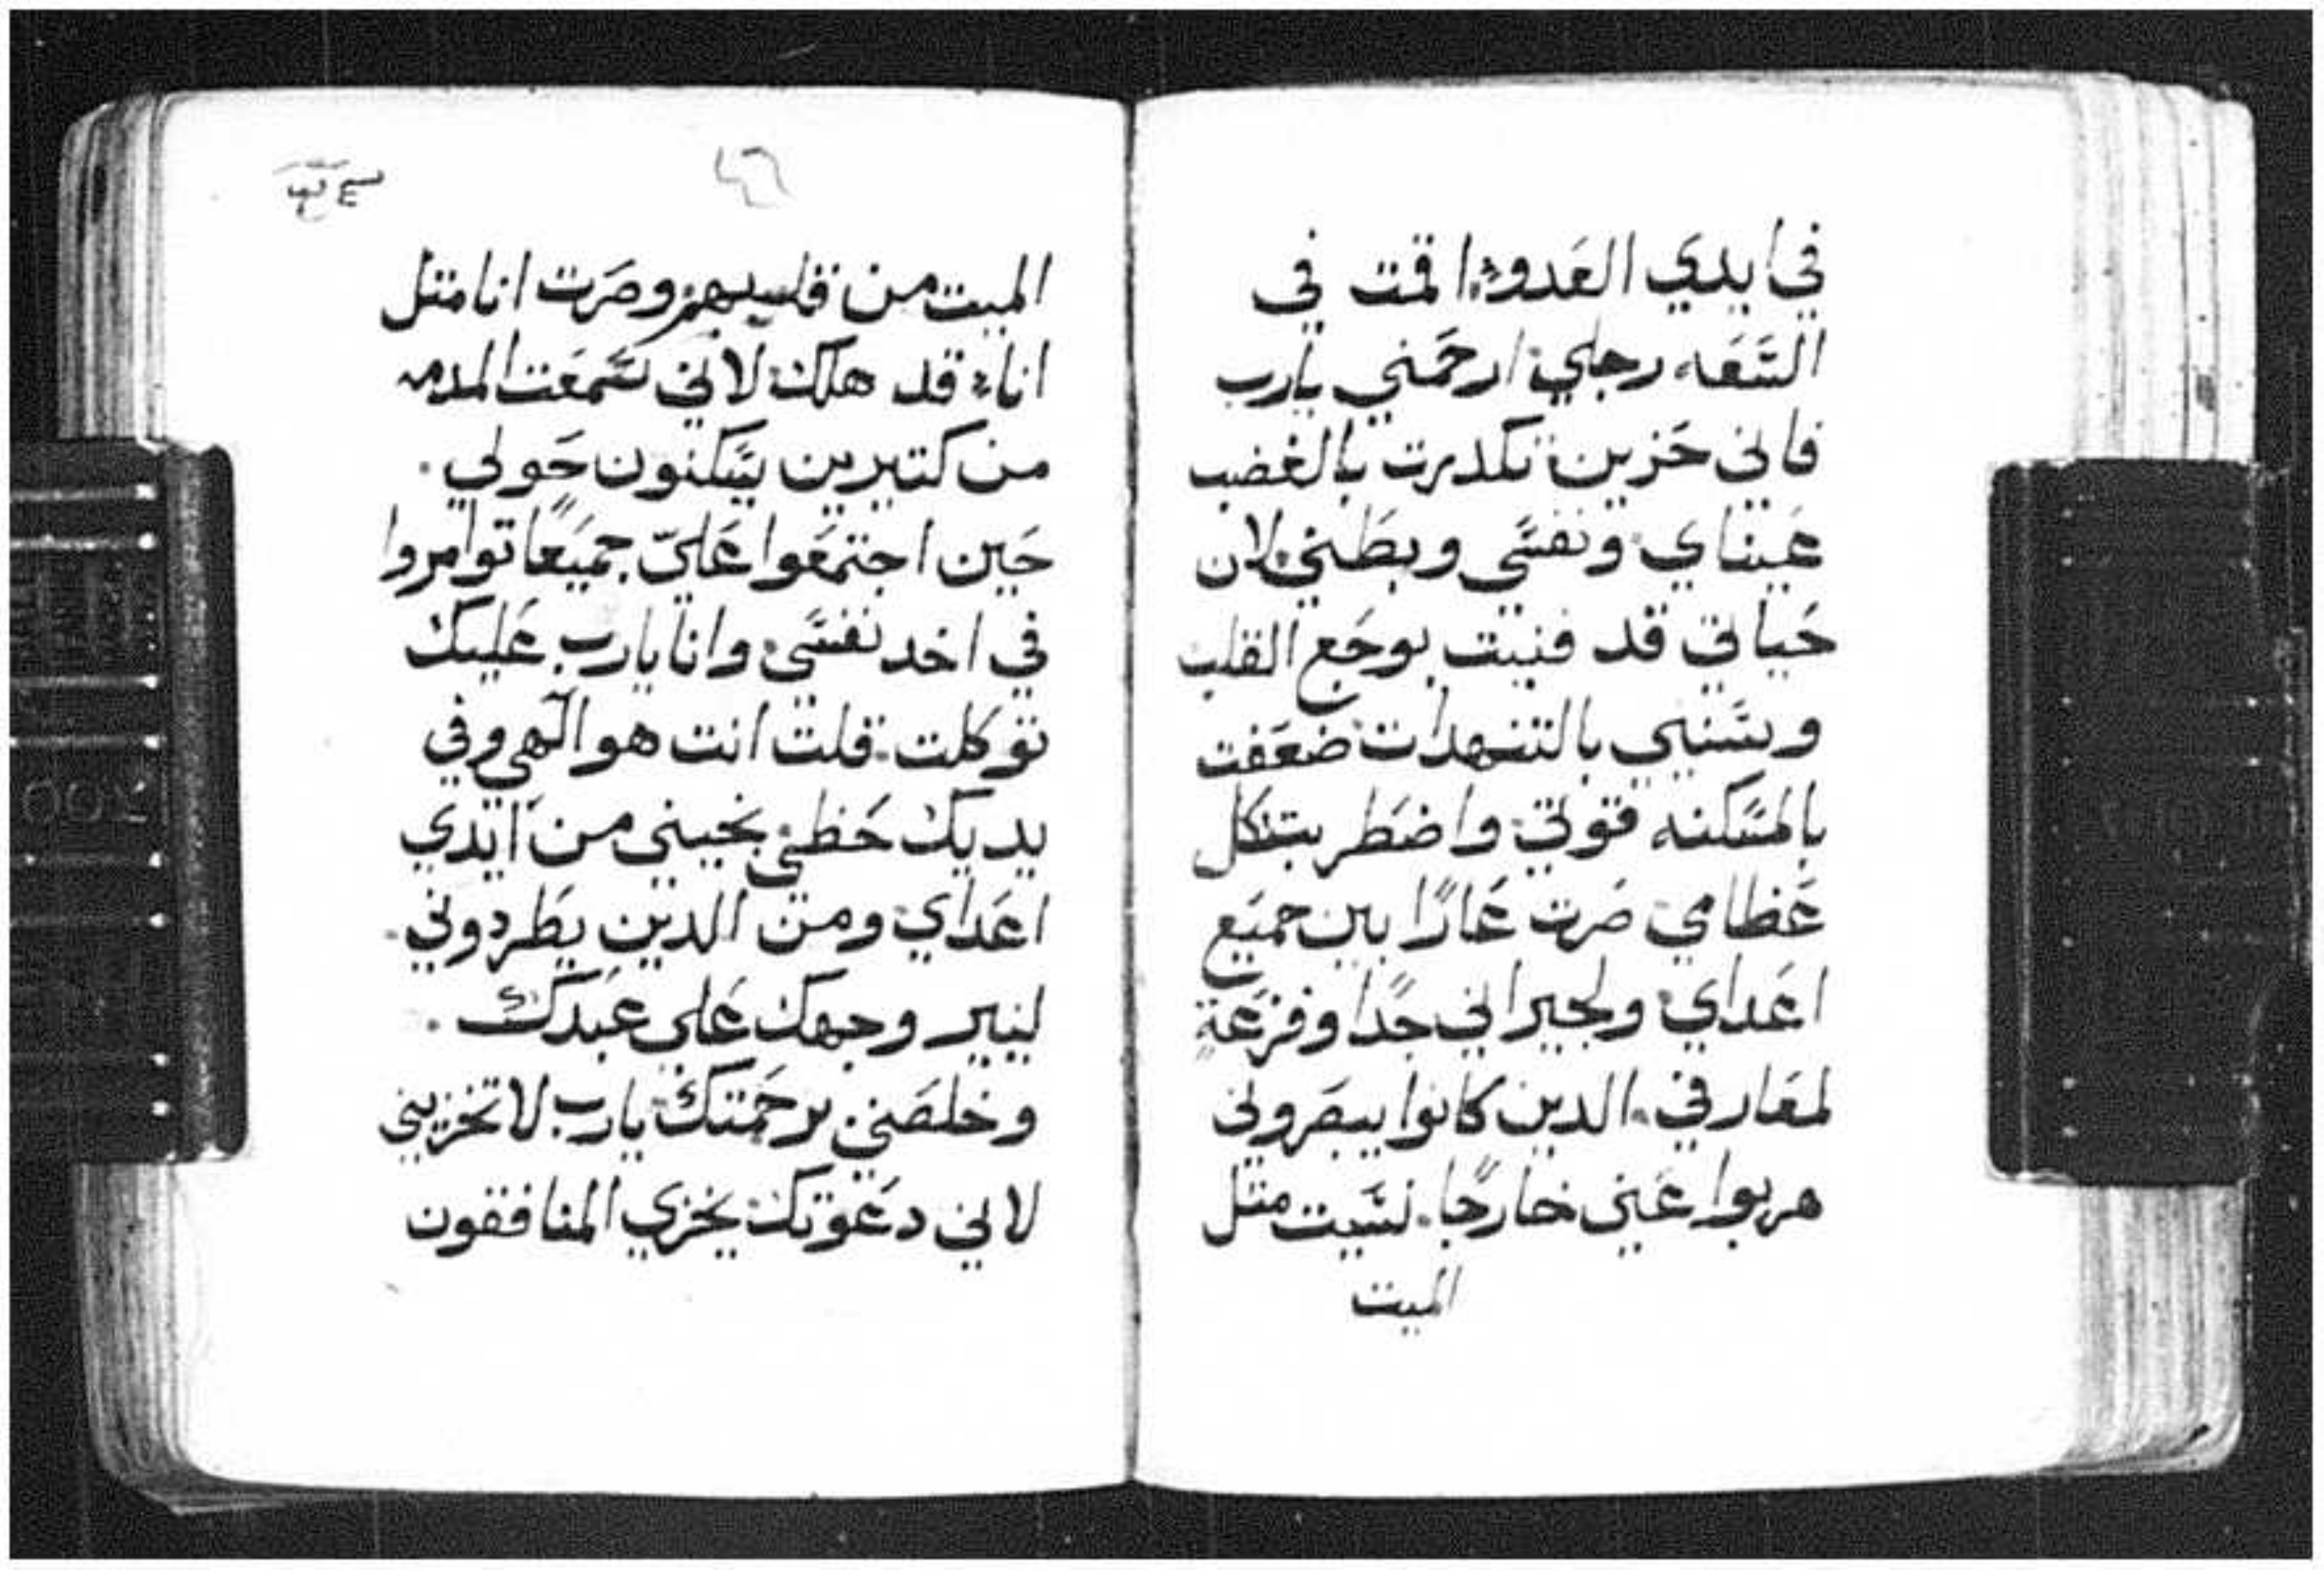 في ايدي العَدو: اقمت في
السَّعَه رجلي: ارحَمني يارب
فاني حَزين: تكدرت بالغضب
عَيناي: ونفسَي وبطَني: لان
حَياتي قد فنيت بوجَع القلب
وسَنيي بالتنهدات: ضعَفت
بالمسَكنه قوتي: واضطربت كل
عَظامي: صَرت عَارًا بين جميَع
اعَداي: ولجيراني جَدًا وفزعَةٍ
لمعَارفي: الدين كانوا يبصَروني
هربوا عَني خارجًا: نسَيت متل
الميت
٤٦
الميت من قلبهم: وصَرت انا متل
اناء قد هلك: لاني سَمعَت المدمه
من كتيرين يسَكنون حَولي.
حَين اجتمعَوا عَليّ جميَعًا توامروا
في اخد نفسَي: وانا يارب عَليك
توكلت: قلت انت هو الٓهي وفي
يديك حَظي: نجيني من ايَدي
اعَداي: ومن الدين يطَردوني.
لنير وجهك عَلي عَبدك.
وخلصَني برحَمتك: يارب لا تخزيني
لاني دعَوتك: يخزي المنافقون